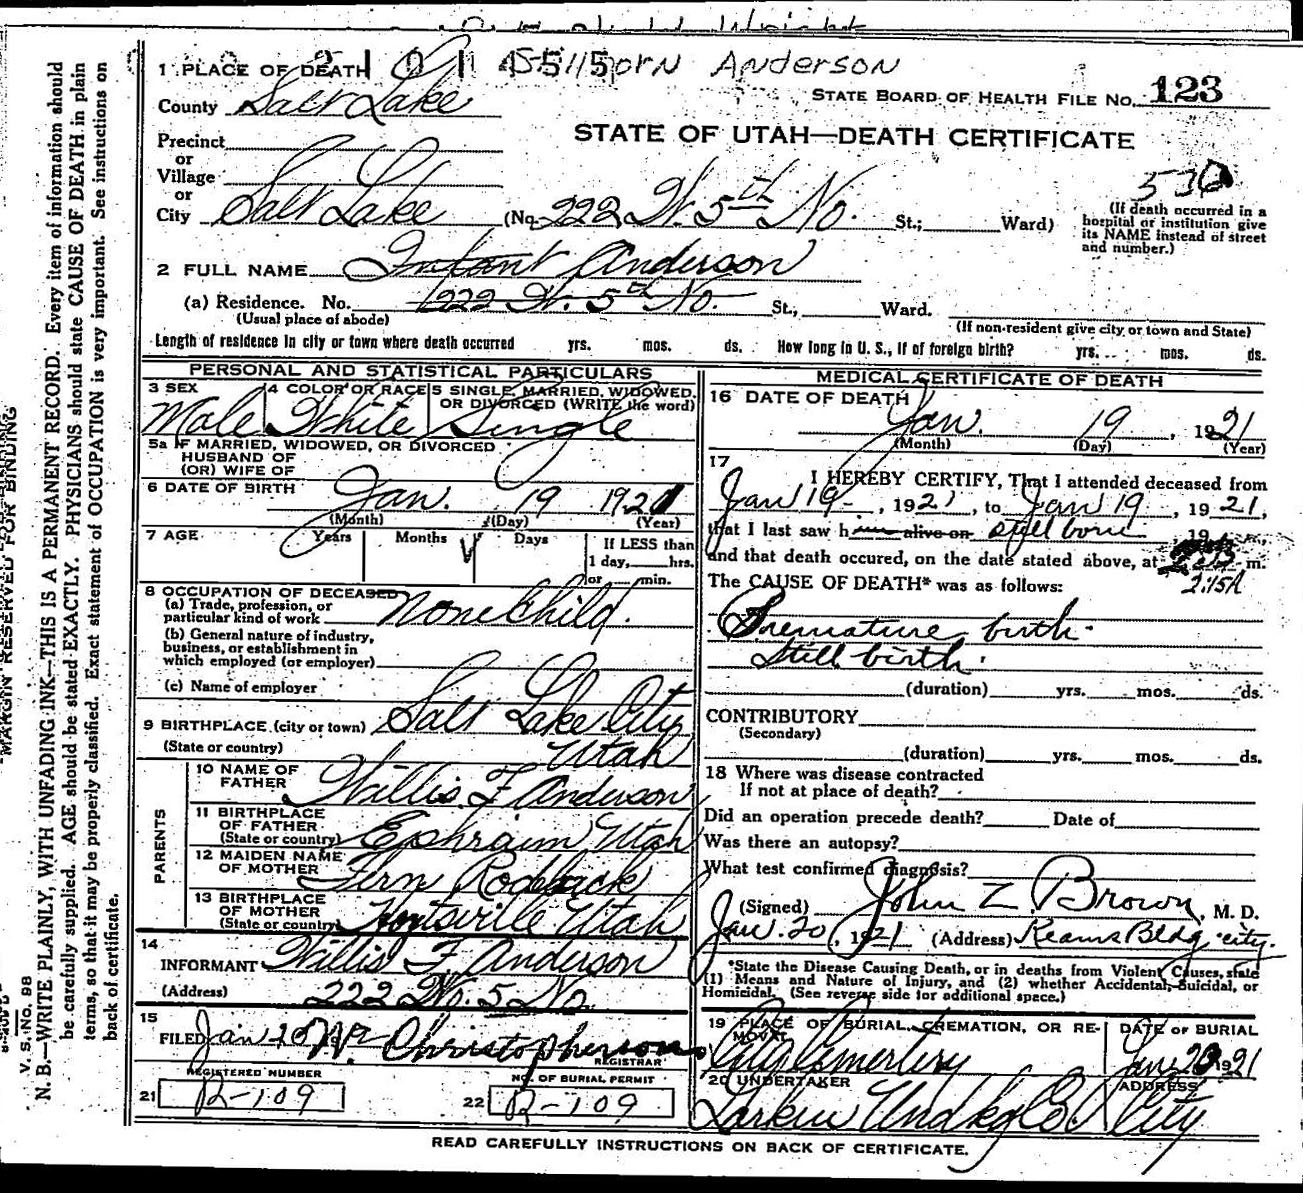 Stillborn Anderson
1 PLACE OF DEATH
STATE BOARD OF HEALTH FILE NO. 123
County Salt Lake
STATE OF UTAH—DEATH CERTIFICATE
Precinct
or
Village
or
City Salt Lake (No. 222 W. 5th No. St.; Ward)
(If death occurred in a
hospital or institution give
its NAME instead of street
and number.)
2 FULL NAME Infant Anderson
(a) Residence. No. 222 W. 5th No. St., Ward.
(Usual place of abode) (If non-resident give city or town and State)
Length of residence in city or town where death occurred yrs. mos. ds. How long in U. S., if of foreign birth? yrs. mos. ds.
PERSONAL AND STATISTICAL PARTICULARS
3 SEX Male
4 COLOR OR RACE White
5 SINGLE, MARRIED, WIDOWED,
OR DIVORCED (WRITE the word)
Single
5a IF MARRIED, WIDOWED, OR DIVORCED
HUSBAND OF
(OR) WIFE OF
6 DATE OF BIRTH Jan. 19 1921
(Month) (Day) (Year)
7 AGE Years Months Days
If LESS than
1 day, hrs.
or min.
8 OCCUPATION OF DECEASED
(a) Trade, profession, or
particular kind of work None Child.
(b) General nature of industry,
business, or establishment in
which employed (or employer)
(c) Name of employer
9 BIRTHPLACE (city or town) Salt Lake City
(State or country) Utah
PARENTS
10 NAME OF
FATHER Willis F Anderson
11 BIRTHPLACE
OF FATHER
(State or country) Ephraim Utah
12 MAIDEN NAME
OF MOTHER Fern Rodeback
13 BIRTHPLACE
OF MOTHER
(State or country) Huntsville Utah
14
INFORMANT Willis F Anderson
(Address) 222 W. 5 No
15
FILED Jan 20 Christopherson
REGISTRAR
REGISTERED NUMBER
21 B-109
NO. OF BURIAL PERMIT
22 B-109
MEDICAL CERTIFICATE OF DEATH
16 DATE OF DEATH
Jan. 19, 1921
(Month) (Day) (Year)
17
I HEREBY CERTIFY, That I attended deceased from
Jan 19, 1921, to Jan 19, 1921,
that I last saw h alive on still born, 19
and that death occured, on the date stated above, at m.
2:15A
The CAUSE OF DEATH* was as follows:
Premature birth.
Still birth.
(duration) yrs. mos. ds.
CONTRIBUTORY
(Secondary)
(duration) yrs. mos. ds.
18 Where was disease contracted
If not at place of death?
Did an operation precede death? Date of
Was there an autopsy?
What test confirmed diagnosis?
(Signed) John Z. Brown, M. D.
Jan. 20, 1921 (Address) Kearns Bldg city.
*State the Disease Causing Death, or in deaths from Violent Causes, state
(1) Means and Nature of Injury, and (2) whether Accidental, Suicidal, or
Homicidal. (See reverse side for additional space.)
19 PLACE OF BURIAL, CREMATION, OR RE-
MOVAL
City Cemetery
DATE OF BURIAL
Jan 20 1921
20 UNDERTAKER
Larkin Undkg Co.
ADDRESS
City
READ CAREFULLY INSTRUCTIONS ON BACK OF CERTIFICATE.
MARGIN RESERVED FOR BINDING
V. S. No. 98
N. B.—WRITE PLAINLY, WITH UNFADING INK—THIS IS A PERMANENT RECORD. Every item of information should
be carefully supplied. AGE should be stated EXACTLY. PHYSICIANS should state CAUSE OF DEATH in plain
terms, so that it may be properly classified. Exact statement of OCCUPATION is very important. See instructions on
back of certificate.